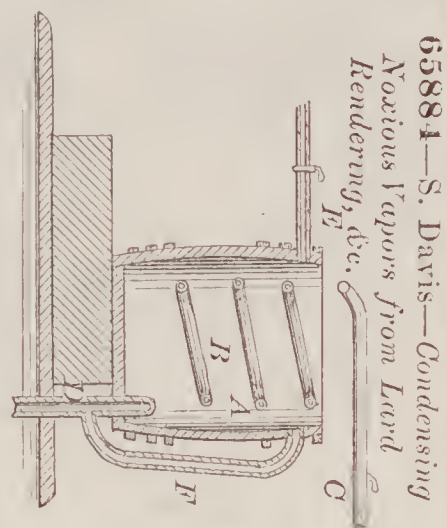 65884—S. Davis—Condensing
Noxious Vapors from Lard
Rendering, &c.
E
C
A
B
F